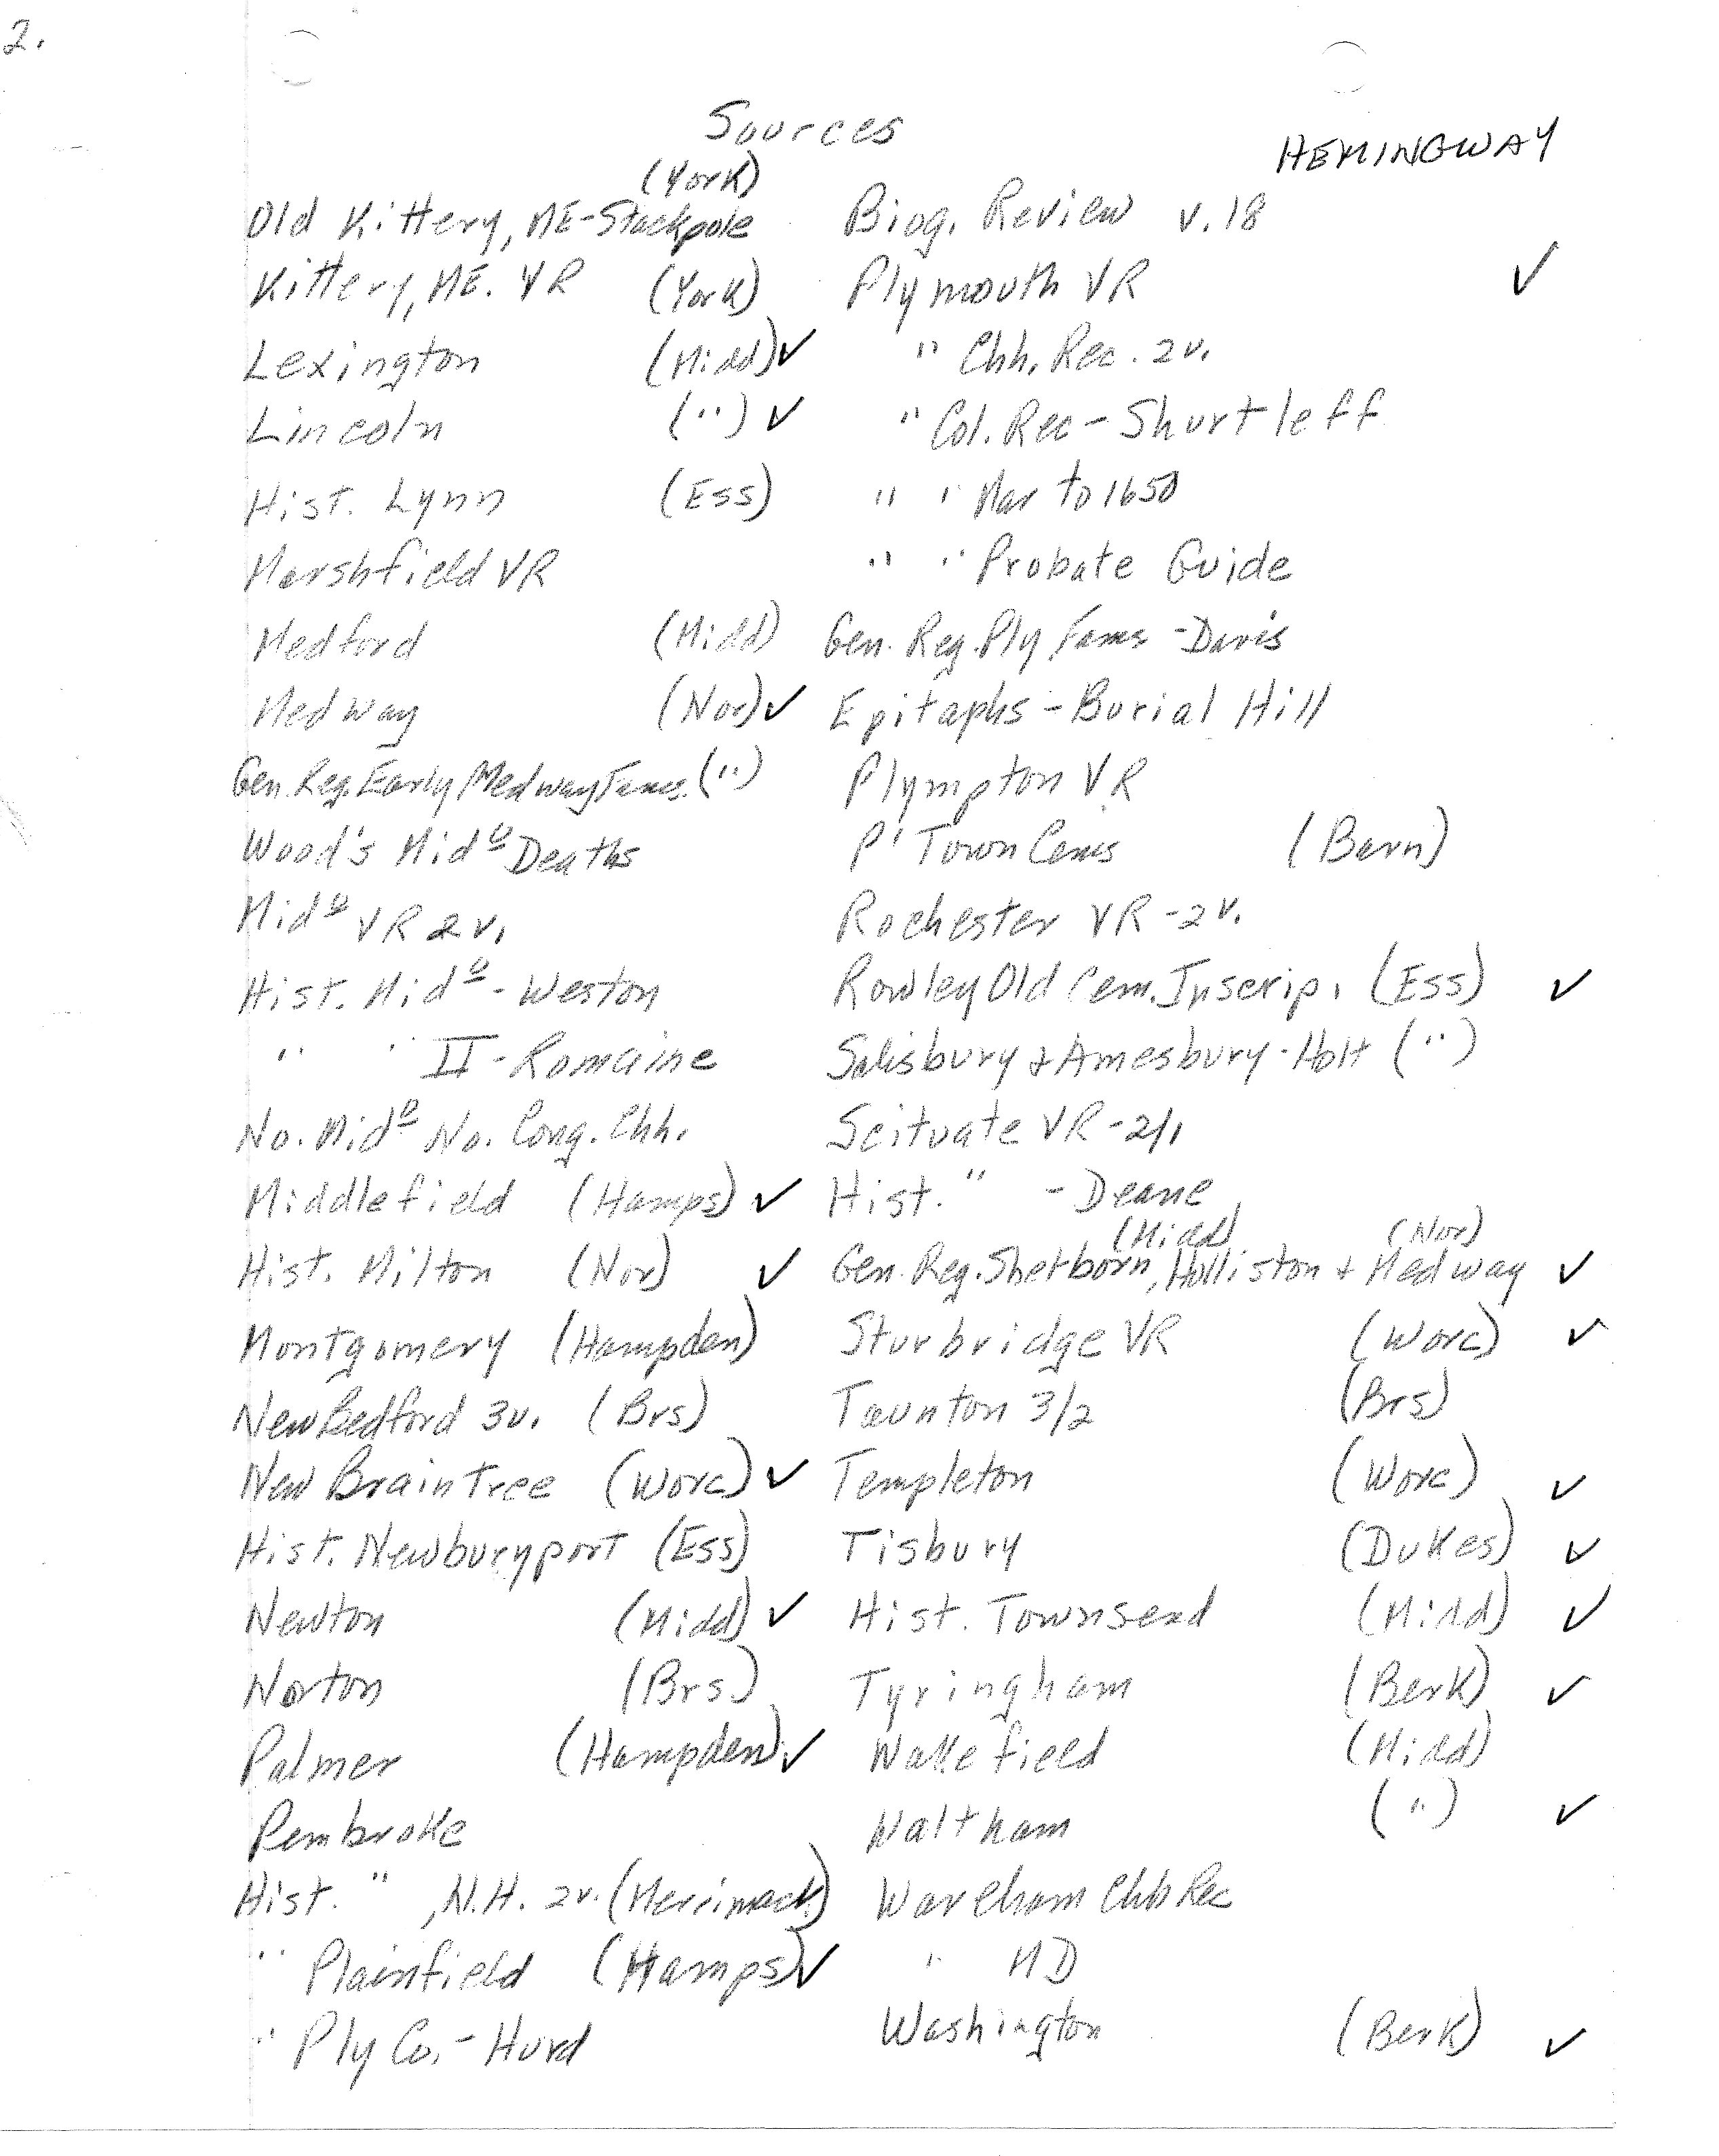 2.
Sources
HEMINGWAY
(York)
Old Kittery, ME-Stackpole
Kittery, ME. VR (York)
Lexington (Midd) ✓
Lincoln (") ✓
Hist. Lynn (Ess)
Marshfield VR
Medford (Midd)
Medway (Nor) ✓
Gen. Reg. Early Medway Fams. (")
Wood's Mid<u>o</u> Deaths
Mid<u>o</u> VR 2v.
Hist. Mid<u>o</u> - Weston
" " II - Romaine
No. Mid<u>o</u> No. Cong. Chh.
Middlefield (Hamps) ✓
Hist. Milton (Nor) ✓
Montgomery (Hampden)
New Bedford 3v. (Brs)
New Braintree (Worc) ✓
Hist. Newburyport (Ess)
Newton (Midd) ✓
Norton (Brs)
Palmer (Hampden) ✓
Pembroke
Hist. " , N.H. 2v. (Merrimack)
" Plainfield (Hamps) ✓
" Ply Co. - Hurd
Biog. Review v. 18
Plymouth VR ✓
" Chh. Rec. 2v.
" Col. Rec - Shurtleff
" " Mar to 1650
" " Probate Guide
Gen. Reg. Ply Fams - Davis
Epitaphs - Burial Hill
Plympton VR
P'Town Cems (Barn)
Rochester VR - 2v.
Rowley Old Cem. Inscrip. (Ess) ✓
Salisbury & Amesbury - Hoyt (")
Scituate VR - 2/1
Hist. " - Deane
(Midd) (Nor)
Gen. Reg. Sherborn, Holliston + Medway ✓
Sturbridge VR (Worc) ✓
Taunton 3/2 (Brs)
Templeton (Worc) ✓
Tisbury (Dukes) ✓
Hist. Townsend (Midd) ✓
Tyringham (Berk) ✓
Wakefield (Midd)
Waltham (") ✓
Wareham Chh Rec
" MD
Washington (Berk) ✓